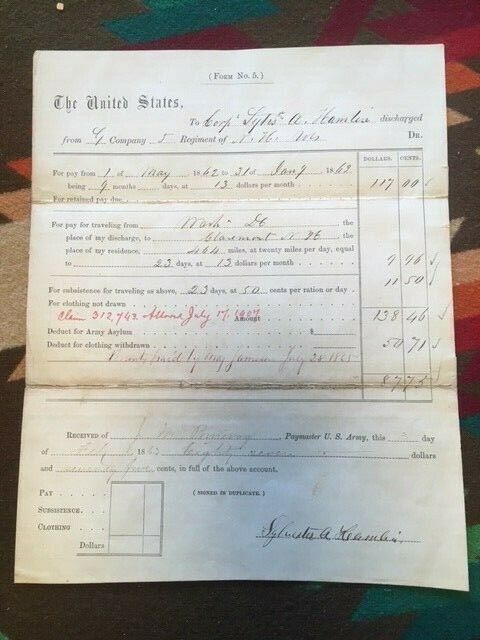 (FORM No. 5.)
The United States,
To Corpl Sylvr A. Hamlin discharged
from G Company 5 Regiment of N. H. Vols DR.
DOLLARS. CENTS.
For pay from 1 of May 1862 to 31st Jany 1863
being 9 months days, at 13 dollars per month 117 00
For retained pay due
For pay for traveling from Washn DC the
place of my discharge, to Claremont N. H. the
place of my residence, 464 miles, at twenty miles per day, equal
to 23 days, at 13 dollars per month 9 96
For subsistence for traveling as above, 23 days, at 50 cents per ration or day 11 50
For clothing not drawn
Claim 312,743. Allowed July 17, 1907
Amount 138 46
Deduct for Army Asylum $
Deduct for clothing withdrawn 50 71
paid by Maj July 28 1865
87 75
RECEIVED of J. Paymaster U. S. Army, this day
of 1863 eight seven dollars
and seventy five cents, in full of the above account.
PAY
(SIGNED IN DUPLICATE.)
SUBSISTENCE.
CLOTHING
Sylvester A Hamlin.
Dollars